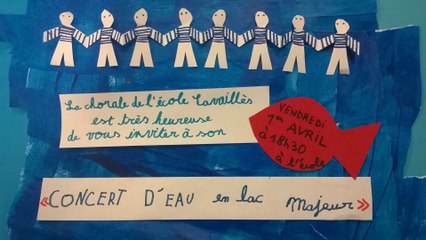 La chorale de l'école Cavaillès
est très heureuse
de vous inviter à son
VENDREDI
1er AVRIL
à 18h30
à l'école
«CONCERT D'EAU en lac Majeur»